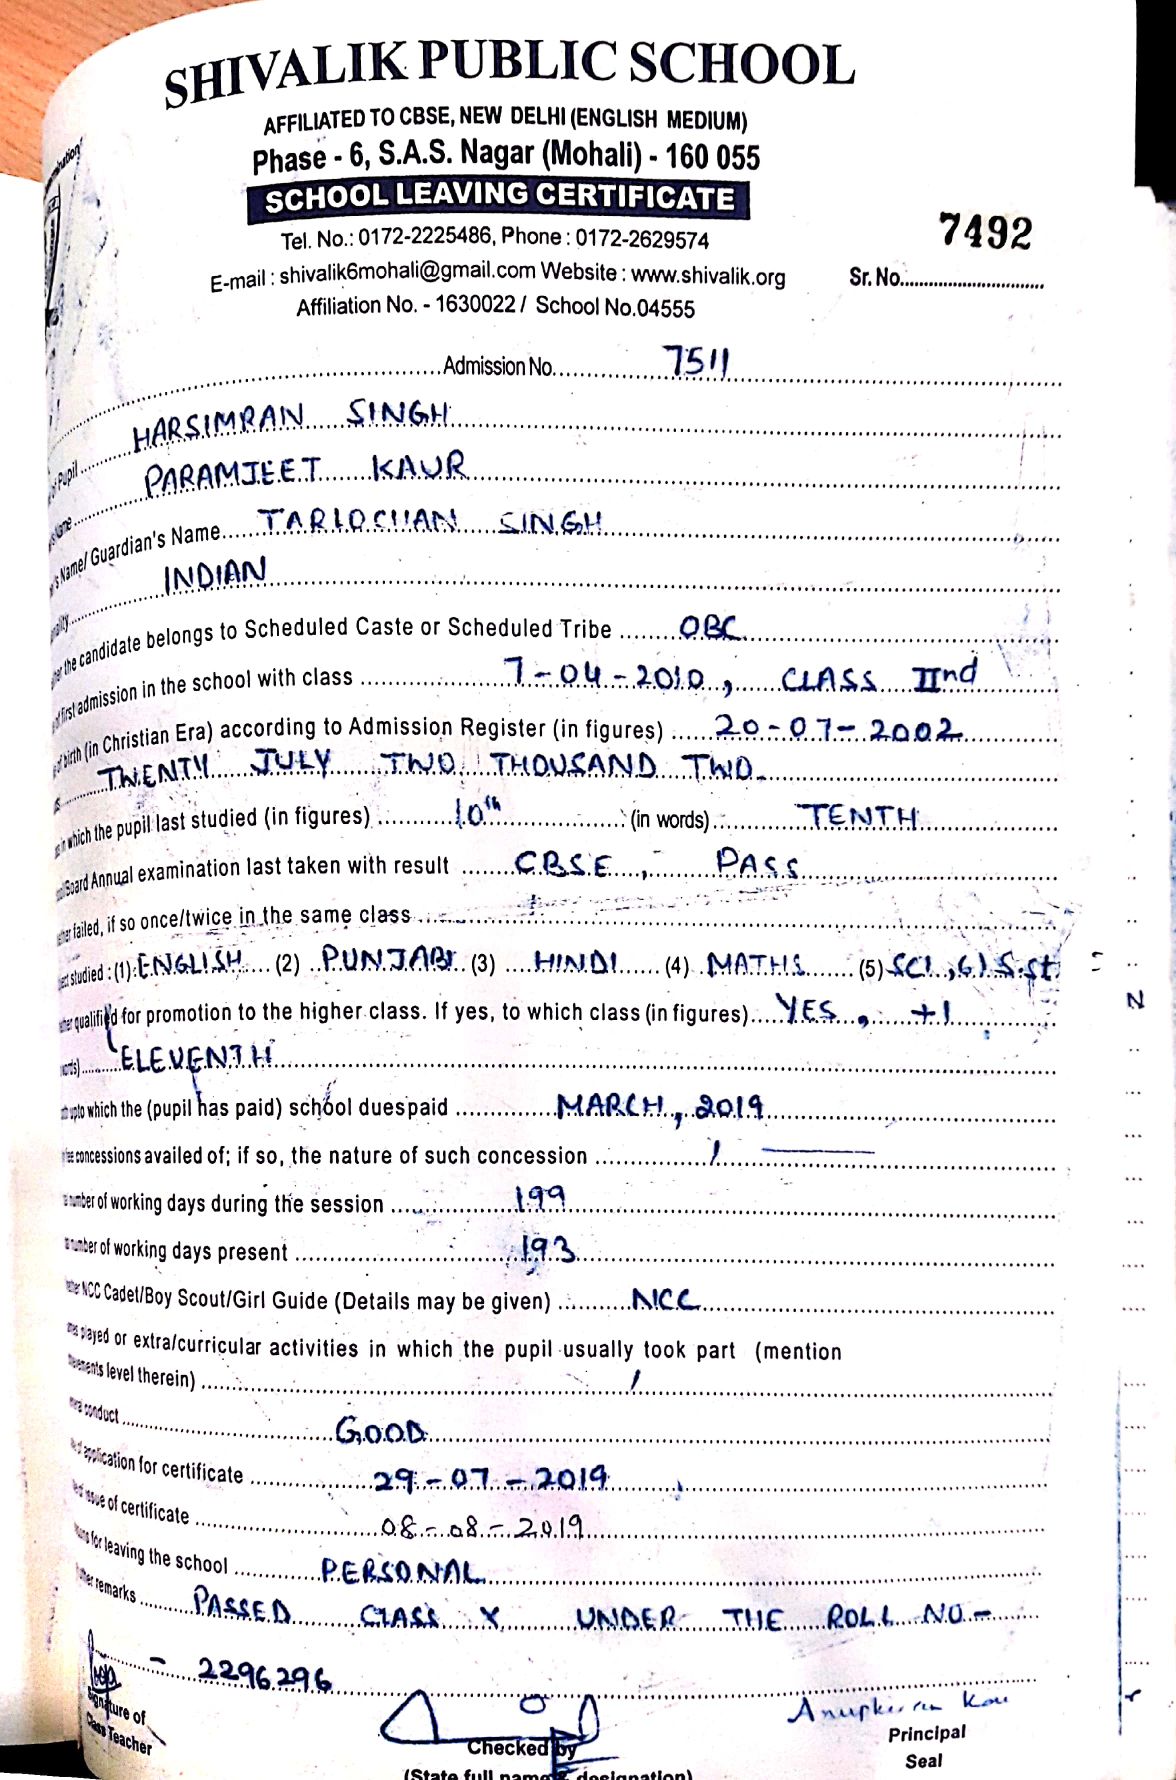 SHIVALIK PUBLIC SCHOOL
AFFILIATED TO CBSE, NEW DELHI (ENGLISH MEDIUM)
Phase - 6, S.A.S. Nagar (Mohali) - 160 055
SCHOOL LEAVING CERTIFICATE
7492
Tel. No.: 0172-2225486, Phone : 0172-2629574
E-mail : shivalik6mohali@gmail.com Website : www.shivalik.org Sr. No.
Affiliation No. - 1630022 / School No.04555
Admission No. 7511
Pupil HARSIMRAN SINGH
Name PARAMJEET KAUR
Name/ Guardian's Name TARLOCHAN SINGH
INDIAN
the candidate belongs to Scheduled Caste or Scheduled Tribe OBC
first admission in the school with class 7-04-2010, CLASS IInd
birth (in Christian Era) according to Admission Register (in figures) 20-07-2002
TWENTY JULY TWO THOUSAND TWO.
which the pupil last studied (in figures) 10th (in words) TENTH
Board Annual examination last taken with result CBSE, PASS
failed, if so once/twice in the same class
studied : (1) ENGLISH (2) PUNJABI (3) HINDI (4) MATHS (5) SCI, 6) S.st
qualified for promotion to the higher class. If yes, to which class (in figures) YES, +1
ELEVENTH
upto which the (pupil has paid) school dues paid MARCH, 2019
concessions availed of; if so, the nature of such concession / —
number of working days during the session 199
number of working days present 193
NCC Cadet/Boy Scout/Girl Guide (Details may be given) NCC
played or extra/curricular activities in which the pupil usually took part (mention
level therein) /
conduct GOOD
application for certificate 29-07-2019
issue of certificate 08-08-2019
for leaving the school PERSONAL
remarks PASSED CLASS X UNDER THE ROLL NO-
- 2296296
Signature of
Class Teacher
Checked by
(State full name & designation)
Principal
Seal